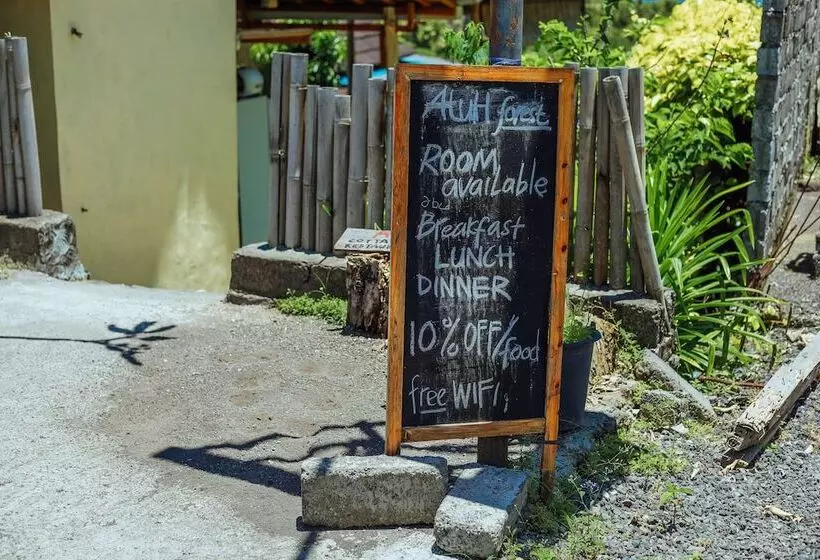 AtUH forest
ROOM
available
Breakfast
LUNCH
DINNER
10% OFF/food
free WIFI
COTTA